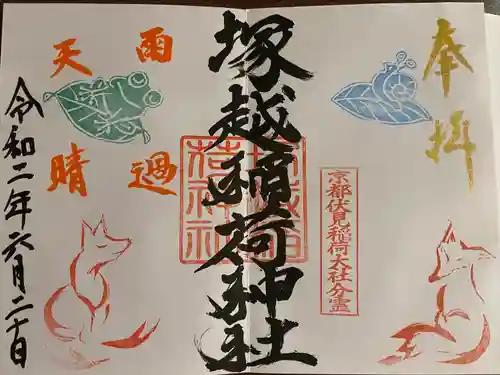 奉拝
京都伏見稲荷大社分霊
塚越稲荷神社
塚越稲荷神社
雨過
天晴
令和二年六月二十日